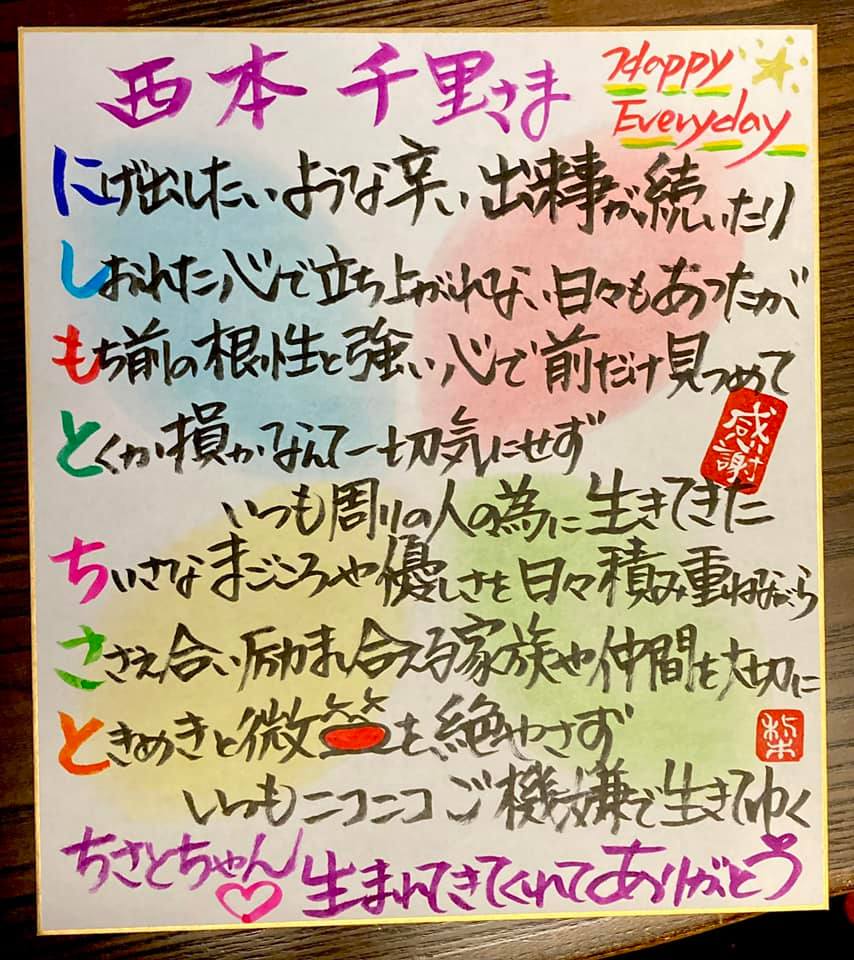 西本 千里さま
Happy
Everyday
にげ出したいような辛い出来事が続いたり
しおれた心で立ち上がれない日々もあったが
もち前の根性と強い心で前だけ見つめて
とくか損かなんて一切気にせず
感謝
いつも周りの人の為に生きてきた
ちいさなまごころや優しさを日々積み重ねながら
ささえ合い励まし合える家族や仲間を大切に
ときめきと微笑を絶やさず
いつもニコニコご機嫌で生きてゆく
ちさとちゃん 生まれてきてくれてありがとう